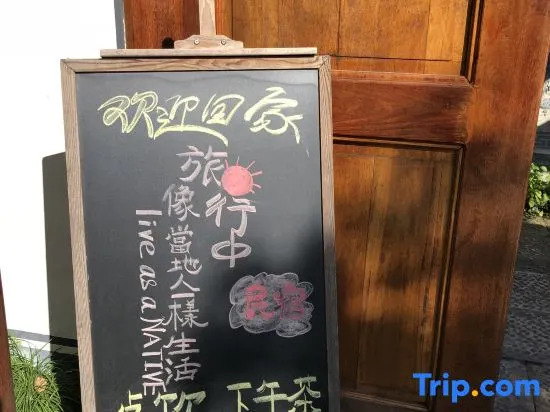 欢迎回家
旅行中
像當地人一樣生活
live as a NATIVE
民宿
下午茶
Trip.com